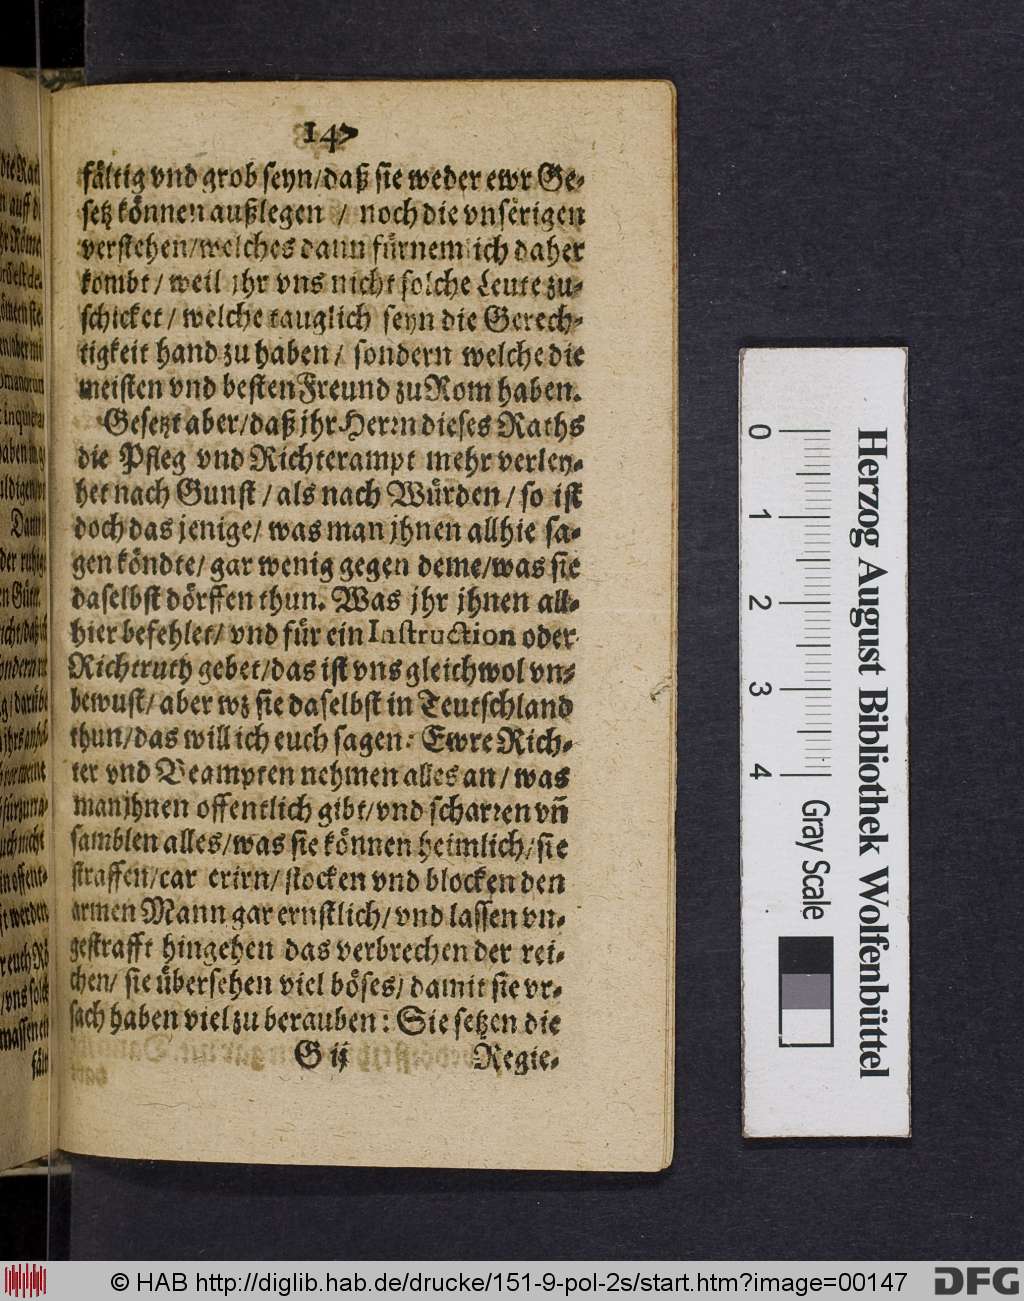 147
fältig vnd grob seyn/daß sie weder ewr Ge-
setz können außlegen / noch die vnserigen
verstehen/welches dann fürnemlich daher
kombt / weil jhr vns nicht solche Leute zu-
schicket / welche tauglich seyn die Gerech-
tigkeit hand zu haben / sondern welche die
meisten vnd besten Freund zu Rom haben.
Gesetzt aber/daß jhr Herrn dieses Raths
die Pfleg vnd Richterampt mehr verley-
het nach Gunst / als nach Würden / so ist
doch das jenige/ was man jhnen allhie sa-
gen köndte/ gar wenig gegen deme/was sie
daselbst dörffen thun. Was jhr jhnen all-
hier befehlet/ vnd für ein Instruction oder
gebet/das ist vns gleichwol vn-
bewust/ aber wz sie daselbst in Teutschland
thun/das will ich euch sagen: Ewre Rich-
ter vnd Beampten nehmen alles an / was
man jhnen offentlich gibt/vnd scharren vñ
samblen alles/was sie können heimlich/sie
straffen/ stocken vnd blocken den
armen Mann gar ernstlich/ vnd lassen vn-
gestrafft hingehen das verbrechen der rei-
chen/ sie übersehen viel böses/ damit sie vr-
sach haben viel zu berauben: Sie setzen die
G ij Regie-
0 1 2 3 4 Gray Scale
Herzog August Bibliothek Wolfenbüttel
© HAB http://diglib.hab.de/drucke/151-9-pol-2s/start.htm?image=00147 DFG